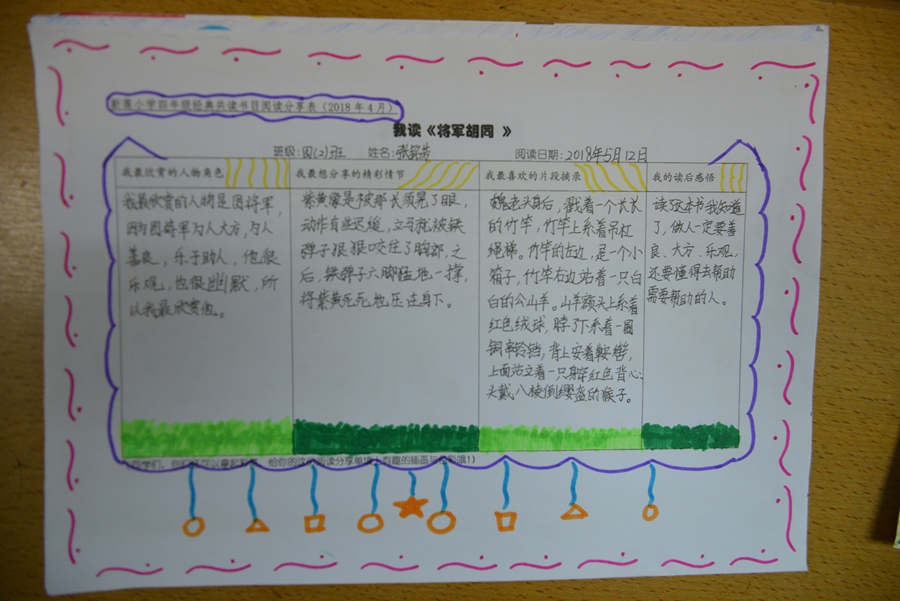 新莲小学四年级经典共读书目阅读分享表（2018年4月）
我读《将军胡同》
班级:四(2)班 姓名: 阅读日期:2018年5月12日
我最欣赏的人物角色
我最欣赏的人物是图将军，
因为图将军为人大方，为人
善良，乐于助人，他很
乐观，也很幽默，所
以我最欣赏他。
我最想分享的精彩情节
紫黄像是被那长须晃了眼，
动作有些迟缓，立马就被铁
弹子狠狠咬住了胸部，之
后，铁弹子六脚猛地一撑，
将紫黄死死地压在身下。
我最喜欢的片段摘录
魏老头身后，戳着一个长长
的竹竿，竹竿上系着吊杠
绳梯。竹竿的左边，是一个小
箱子，竹竿右边站着一只白
白的公山羊。山羊额头上系着
红色绒球，脖子下系着一圈
铜铃铛，背上安着鞍辔，
上面站立着一只身穿红色背心、
头戴八棱倒缨盔的猴子。
我的读后感悟
读了这本书我知道
了，做人一定要善
良、大方、乐观，
还要懂得去帮助
需要帮助的人。
同学们，你们还可以拿起彩笔，给你的这份阅读分享单添上有趣的插画与花边哦！)